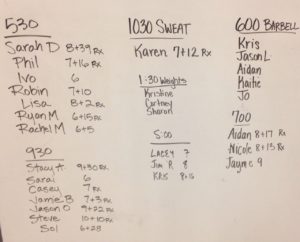 530
Sarah D 8+39 Rx
Phil 7+16 Rx
Ivo 6
Robin 7+10
Lisa 8+2 Rx
Ryan M 6+15 Rx
Rachel M 6+5
930
Stacy H 9+30 Rx
Sarai 6
Casey 7 Rx
Jamie B 7+3 Rx
Jason O 9+22 Rx
Steve 10+10 Rx
Sol 6+28
1030 SWEAT
Karen 7+12 Rx
1:30 Weights
Kristine
Cortney
Sharon
5:00
LACEY 7
Jim R 8
KRIS
600 BARBELL
Kris
Jason L
Aidan
Kaitie
Jo
700
Aidan 8+17 Rx
Nicole 8+15 Rx
Jayme 9